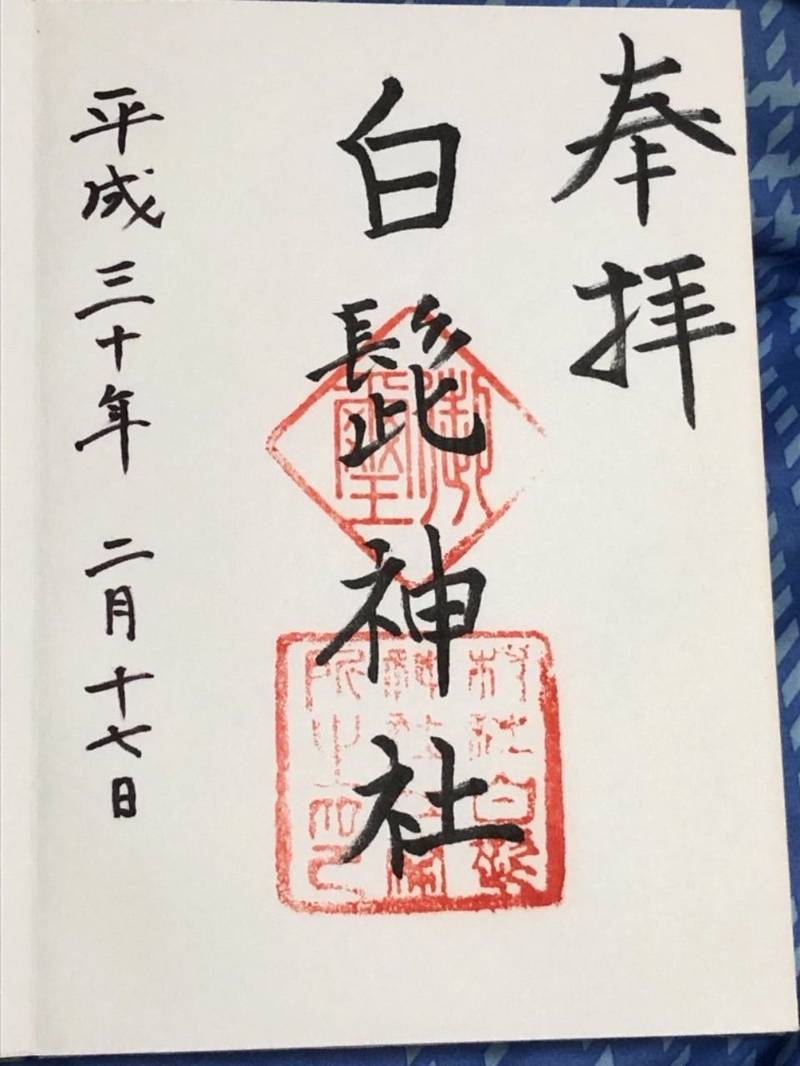 奉拝
白髭神社
御璽
平成三十年 二月十七日